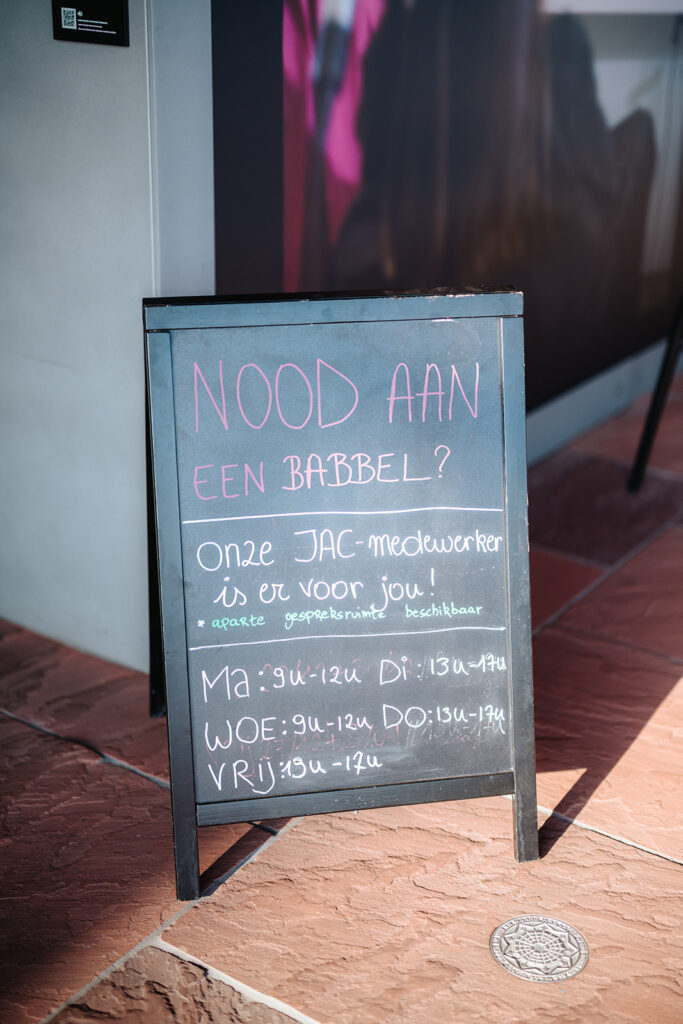 NOOD AAN
EEN BABBEL?
Onze JAC-medewerker
is er voor jou!
* aparte gespreksruimte beschikbaar
Ma: 9u-12u Di: 13u-17u
WOE: 9u-12u DO: 13u-17u
VRIJ: 13u-17u